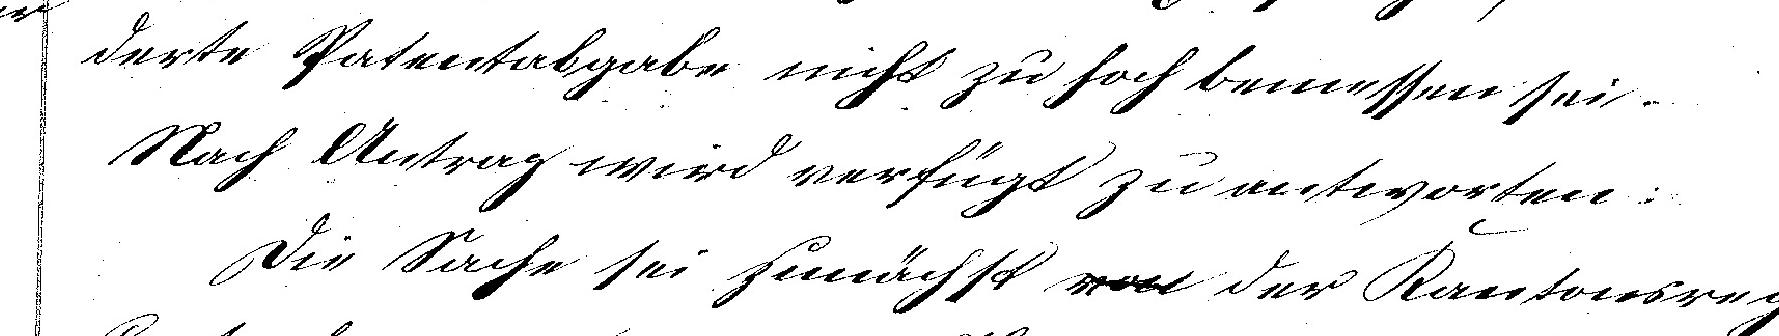 derte Patentabgabe nicht zu hoch bemessen sei.
Nach Antrag wird verfügt zu antworten:
Die Sache sei zunächst von der Kantonsreg